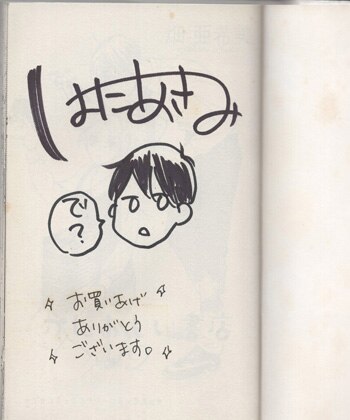 はたあさみ
で?
お買いあげ
ありがとう
ございます。